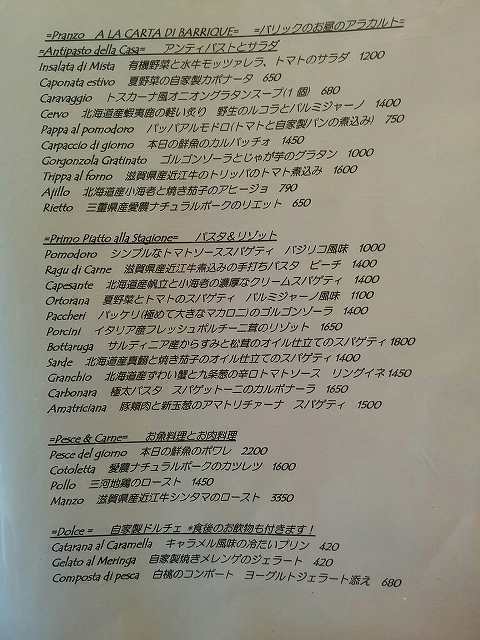 =Pranzo   A LA CARTA DI BARRIQUE=   =バリックのお昼のアラカルト=
=Antipasto della Casa=   アンティパストとサラダ
Insalata di Mista   有機野菜と水牛モッツァレラ、トマトのサラダ   1200
Caponata estivo   夏野菜の自家製カポナータ   650
Caravaggio   トスカーナ風オニオングラタンスープ(1個)   680
Cervo   北海道産蝦夷鹿の軽い炙り   野生のルコラとパルミジャーノ   1400
Pappa al pomodoro   パッパアルモドロ(トマトと自家製パンの煮込み)   750
Carpaccio di giorno   本日の鮮魚のカルパッチォ   1450
Gorgonzola Gratinato   ゴルゴンゾーラとじゃが芋のグラタン   1000
Trippa al forno   滋賀県産近江牛のトリッパのトマト煮込み   1600
Ajillo   北海道産小海老と焼き茄子のアヒージョ   790
Rietto   三重県産愛農ナチュラルポークのリエット   650
=Primo Piatto alla Stagione=   パスタ&リゾット
Pomodoro   シンプルなトマトソーススパゲティ   バジリコ風味   1000
Ragu di Carne   滋賀県産近江牛煮込みの手打ちパスタ   ピーチ   1400
Capesante   北海道産帆立と小海老の濃厚なクリームスパゲティ   1400
Ortorana   夏野菜とトマトのスパゲティ   パルミジャーノ風味   1100
Paccheri   パッケリ(極めて大きなマカロニ)のゴルゴンゾーラ   1400
Porcini   イタリア産フレッシュポルチーニ茸のリゾット   1650
Bottaruga   サルディニア産からすみと松茸のオイル仕立てのスパゲティ 1800
Sarde   北海道産真鰯と焼き茄子のオイル仕立てのスパゲティ 1400
Granchio   北海道産ずわい蟹と九条葱の辛口トマトソース   リングイネ 1450
Carbonara   極太パスタ   スパゲットーニのカルボナーラ   1650
Amatriciana   豚頬肉と新玉葱のアマトリチャーナ   スパゲティ   1500
=Pesce & Carne=   お魚料理とお肉料理
Pesce del giorno   本日の鮮魚のポワレ   2200
Cotoletta   愛農ナチュラルポークのカツレツ   1600
Pollo   三河地鶏のロースト   1450
Manzo   滋賀県産近江牛シンタマのロースト   3350
=Dolce =   自家製ドルチェ   *食後のお飲物も付きます!
Catarana al Caramella   キャラメル風味の冷たいプリン   420
Gelato al Meringa   自家製焼きメレンゲのジェラート   420
Composta di pesca   白桃のコンポート   ヨーグルトジェラート添え   680